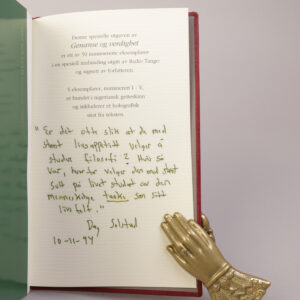 Denne spesielle utgaven av
Genanse og verdighet
er ett av 50 nummererte eksemplarer
i en spesiell innbinding utgitt av Radio Tango
og signert av forfatteren.
5 eksemplarer, nummerert I - V,
er bundet i nigeriansk geiteskinn
og inkluderer et holografisk
sitat fra teksten.
" Er det ofte slik at de med
stort livsappetitt velger å
studere filosofi? Hvis så
var, hvorfor velger den med stort
sett på livet studiet av den
menneskelige tanke som sitt
livs felt."
Dag Solstad
10-11-94